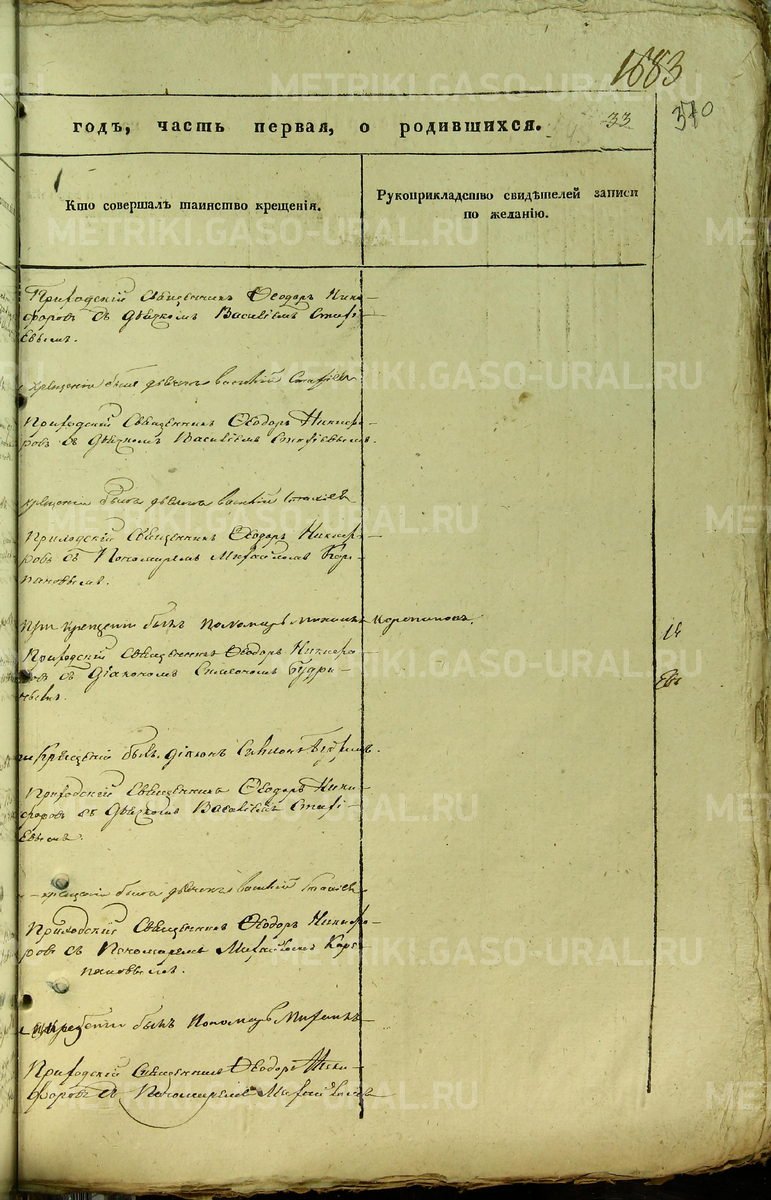 1683
годъ, часть первая, о родившихся.
33
370
Кто совершалъ таинство крещенія.
Рукоприкладство свидѣтелей записи
по желанію.
Приходскій Священникъ Ѳеодоръ Ники-
форовъ съ Дьячкомъ Василіемъ Стафі-
евымъ.
крещеніи былъ дьячекъ василій
Приходскій Священникъ Ѳеодоръ Никифо-
ровъ съ Дьячкомъ Василіемъ Стафіевымъ.
крещеніи былъ дьячекъ василій
Приходскій Священникъ Ѳеодоръ Никифо-
ровъ съ Пономаремъ Михайломъ Коро-
пановымъ.
При крещеніи былъ пономарь
Приходскій Священникъ Ѳеодоръ Никифо-
ровъ съ Діакономъ Симеономъ
крещеніи былъ діаконъ
Приходскій Священникъ Ѳеодоръ Ники-
форовъ съ Дьячкомъ Василіемъ Стафі-
евымъ.
крещеніи былъ дьячекъ василій
Приходскій Священникъ Ѳеодоръ Никифо-
ровъ съ Пономаремъ Михайломъ Коро-
пановымъ.
былъ пономарь
Приходскій Священникъ Ѳеодоръ Ники-
форовъ съ Пономаремъ Михайломъ
METRIKI.GASO-URAL.RU